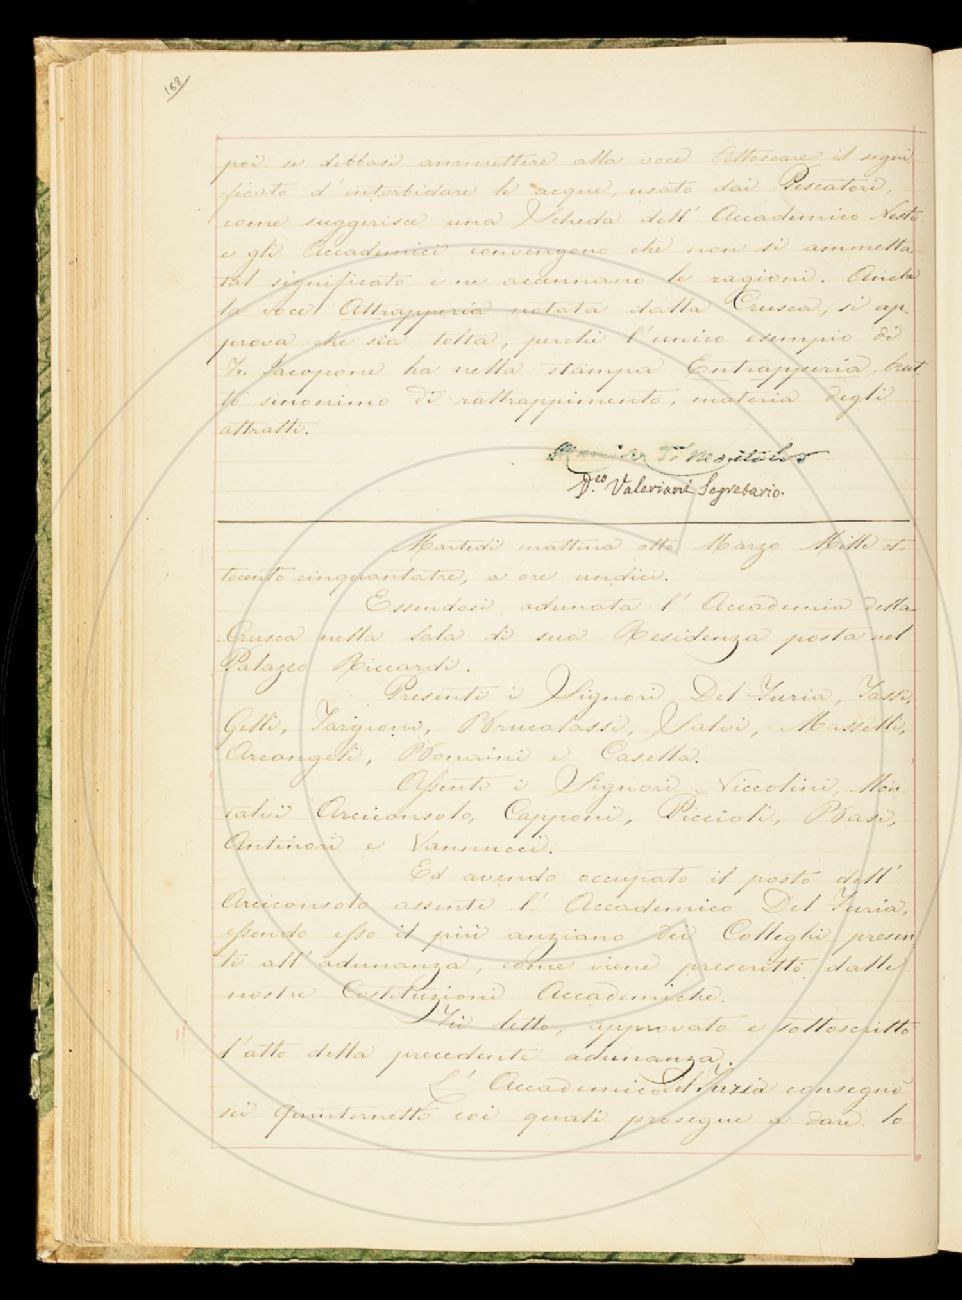 168
poi se debbasi ammettere alla voce Attoscare il signi
ficato d'intorbidare le acque, usato dai Pescatori,
come suggerisce una Scheda dell'Accademico Nesti
e gli Accademici convengono che non si ammetta
tal significato e ne accennano le ragioni. Anche
la voce Attrapperia notata dalla Crusca, si ap-
prova che sia tolta, perchè l'unico esempio di
Fr. Jacopone ha nella stampa Entrapperia, brut
to sinonimo di rattrappimento, materia degli
attratti.
D.co Valeriani Segretario.
Martedì mattina otto Marzo Mille ot-
tocento cinquantatre, a ore undici.
Essendosi adunata l'Accademia della
Crusca nella Sala di sua Residenza posta nel
Palazzo Riccardi.
Presenti i Signori Del Furia, Tassi,
Gelli, Targioni, Brucalassi, Salvi, Masselli,
Arcangeli, Bonaini e Casella.
Assenti i Signori Niccolini, Mon
talvi Arciconsolo, Capponi, Piccioli, Basi,
Antinori e Vannucci.
Ed avendo occupato il posto dell'
Arciconsolo assente l'Accademico Del Furia,
essendo esso il più anziano dei Colleghi presen
ti all'adunanza, come viene prescritto dalle
nostre Costituzioni Accademiche.
Fù letto, approvato e sottoscritto
l'atto della precedente adunanza.
L'Accademico del Furia consegnò
sei quinternetti coi quali prosegue a dare lo